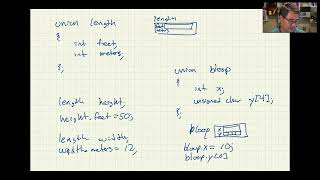 union length
{
int feet;
int meters;
};
length
feet
meters
length height;
height.feet = 50;
length width;
width.meters = 12;
union bloop
{
int x;
unsigned char y[4];
};
bloop
x
y
bloop.x = 10;
bloop.y[0]